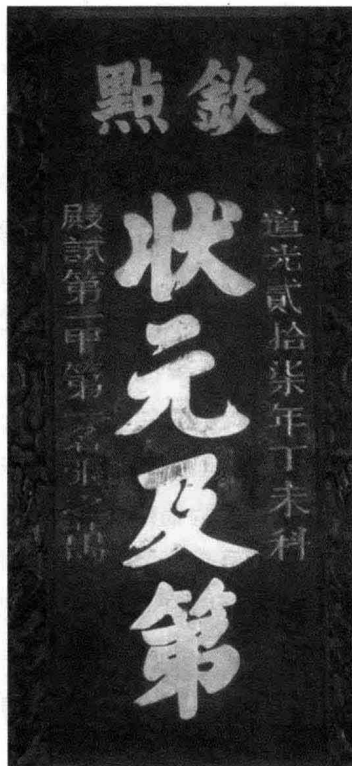 欽點
道光貳拾柒年丁未科
狀元及第
殿試第一甲第一名張之萬